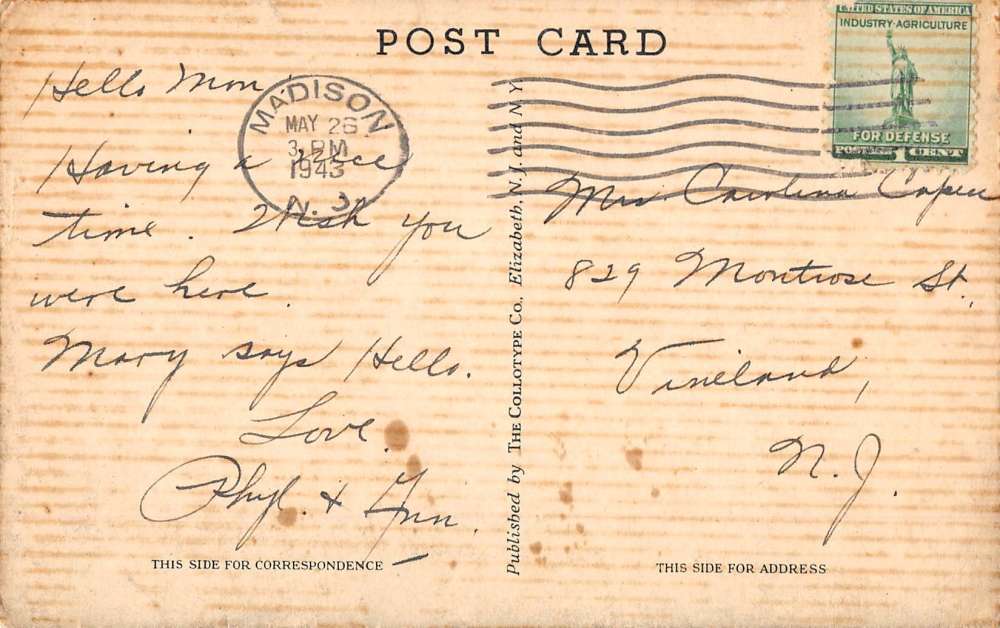 POST CARD
UNITED STATES OF AMERICA
INDUSTRY·AGRICULTURE
FOR DEFENSE
POSTAGE 1 CENT
MADISON
MAY 26
3 PM
1943
N. J.
Hello Mom,
Having a nice
time. Wish you
were here.
Mary says Hello.
Love
Phyl. & Ann.
THIS SIDE FOR CORRESPONDENCE
Published by THE COLLOTYPE CO., Elizabeth, N. J. and N. Y.
Mrs Carolina Capen
829 Montrose St.,
Vineland,
N. J.
THIS SIDE FOR ADDRESS